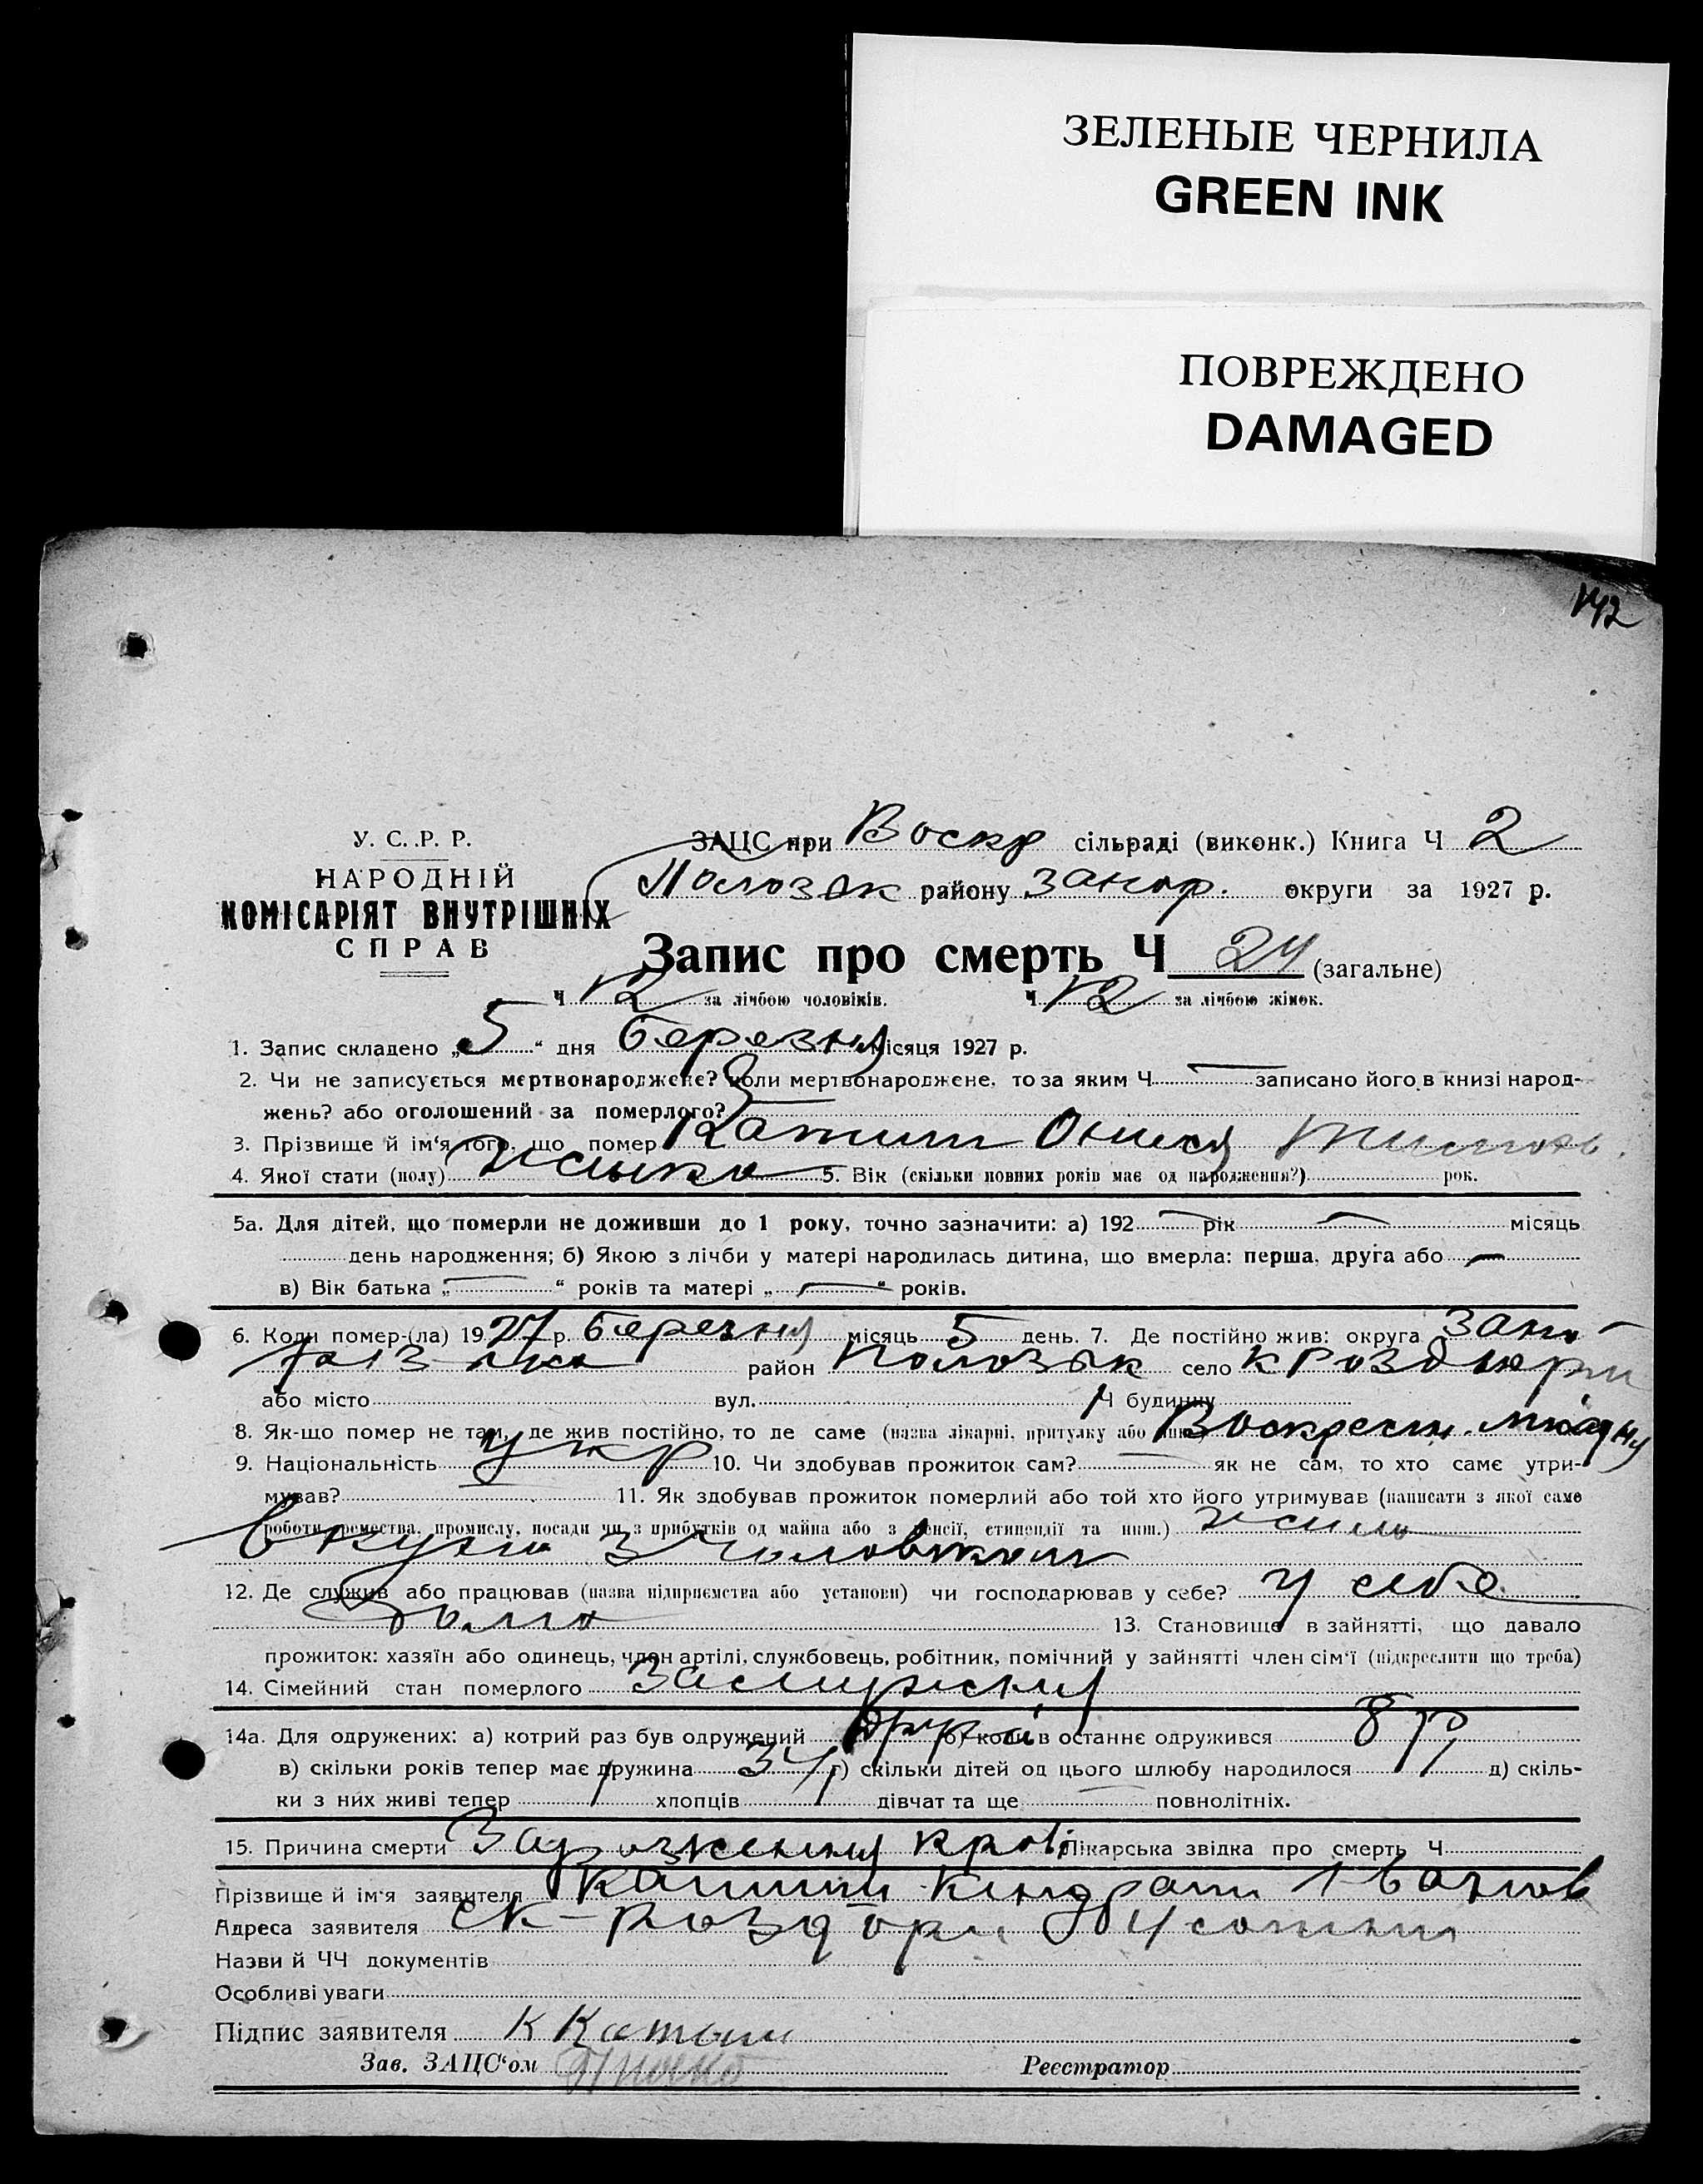 ЗЕЛЕНЫЕ ЧЕРНИЛА
GREEN INK
ПОВРЕЖДЕНО
DAMAGED
142
У. С. Р. Р.
НАРОДНІЙ
КОМІСАРІЯТ ВНУТРІШНІХ
СПРАВ
ЗАЦС при Воскр сільраді (виконк.) Книга Ч 2
району Запор. округи за 1927 р.
Запис про смерть Ч 24 (загальне)
Ч 12 за лічбою чоловіків. Ч 12 за лічбою жінок.
1. Запис складено „5“ дня березня місяця 1927 р.
2. Чи не записується мертвонароджене? Коли мертвонароджене, то за яким Ч — записано його в книзі народ-
жень? або оголошений за померлого?
3. Прізвище й ім‘я того, що помер
4. Якої стати (полу) 5. Вік (скільки повних років має од народження?) рок.
5а. Для дітей, що померли не доживши до 1 року, точно зазначити: а) 192 — рік — місяць
день народження; б) Якою з лічби у матері народилась дитина, що вмерла: перша, друга або —
в) Вік батька „—“ років та матері „—“ років.
6. Коли помер-(ла) 1927 р. березня місяць 5 день. 7. Де постійно жив: округа Запо-
район село
або місто вул. Ч будинку
8. Як-що помер не там, де жив постійно, то де саме (назва лікарні, притулку або инш.)
9. Національність укр 10. Чи здобував прожиток сам? як не сам, то хто саме утри-
мував? 11. Як здобував прожиток померлий або той хто його утримував (написати з якої саме
роботи, ремества, промислу, посади чи з прибутків од майна або з пенсії, стипендії та инш.) жила
вкупі з чоловіком
12. Де служив або працював (назва підприємства або установи) чи господарював у себе? у себе
дома 13. Становище в зайнятті, що давало
прожиток: хазяїн або одинець, член артілі, службовець, робітник, помічний у зайнятті член сім‘ї (підкреслити що треба)
14. Сімейний стан померлого замужня
14а. Для одружених: а) котрий раз був одружений б) коли в останнє одружився 8 р
в) скільки років тепер має дружина 34 г) скільки дітей од цього шлюбу народилося д) скіль-
ки з них живі тепер хлопців дівчат та ще повнолітніх.
15. Причина смерти Зараження крові Лікарська звідка про смерть Ч
Прізвище й ім‘я заявителя Кіндрат Іванов
Адреса заявителя
Назви й ЧЧ документів
Особливі уваги
Підпис заявителя
Зав. ЗАЦС‘ом Реєстратор